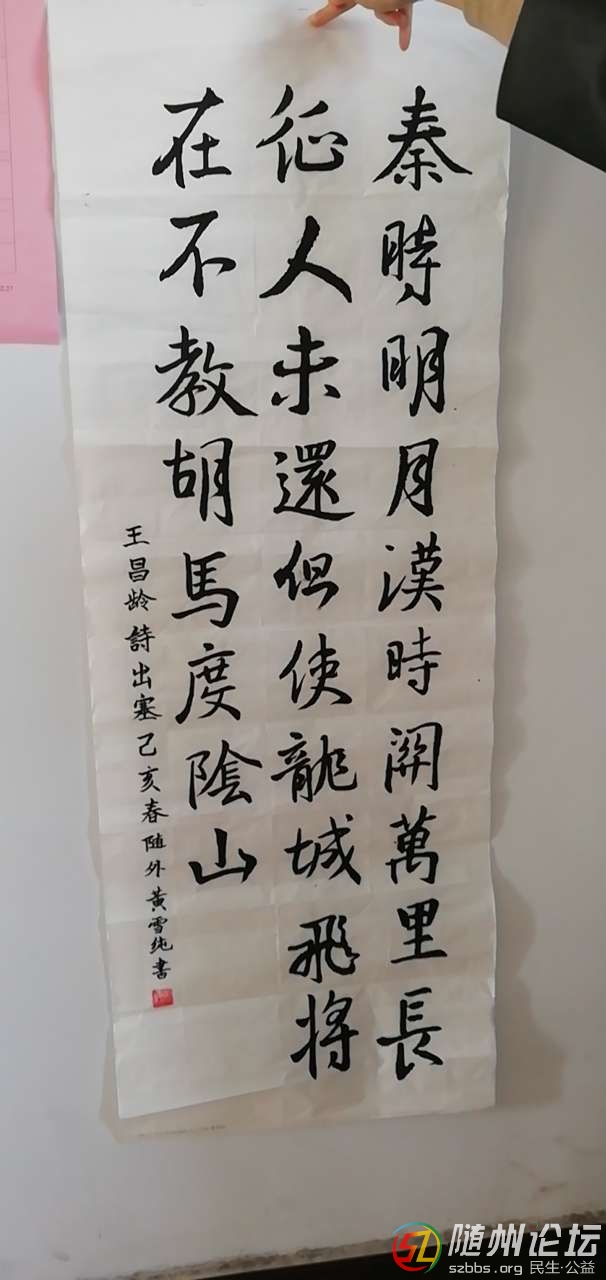 秦時明月漢時關萬里長
征人未還但使龍城飛將
在不教胡馬度陰山
王昌龄詩出塞己亥春随外黄雪纯書
随州论坛
szbbs.org 民生·公益